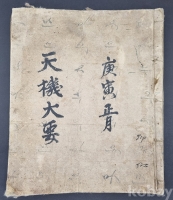 庚寅正月
天機大要
kobay